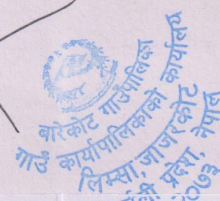 बारेकोट गाउँपालिका
गाउँ कार्यपालिकाको कार्यालय
लिम्सा, जाजरकोट
प्रदेश, नेपाल
२०७३